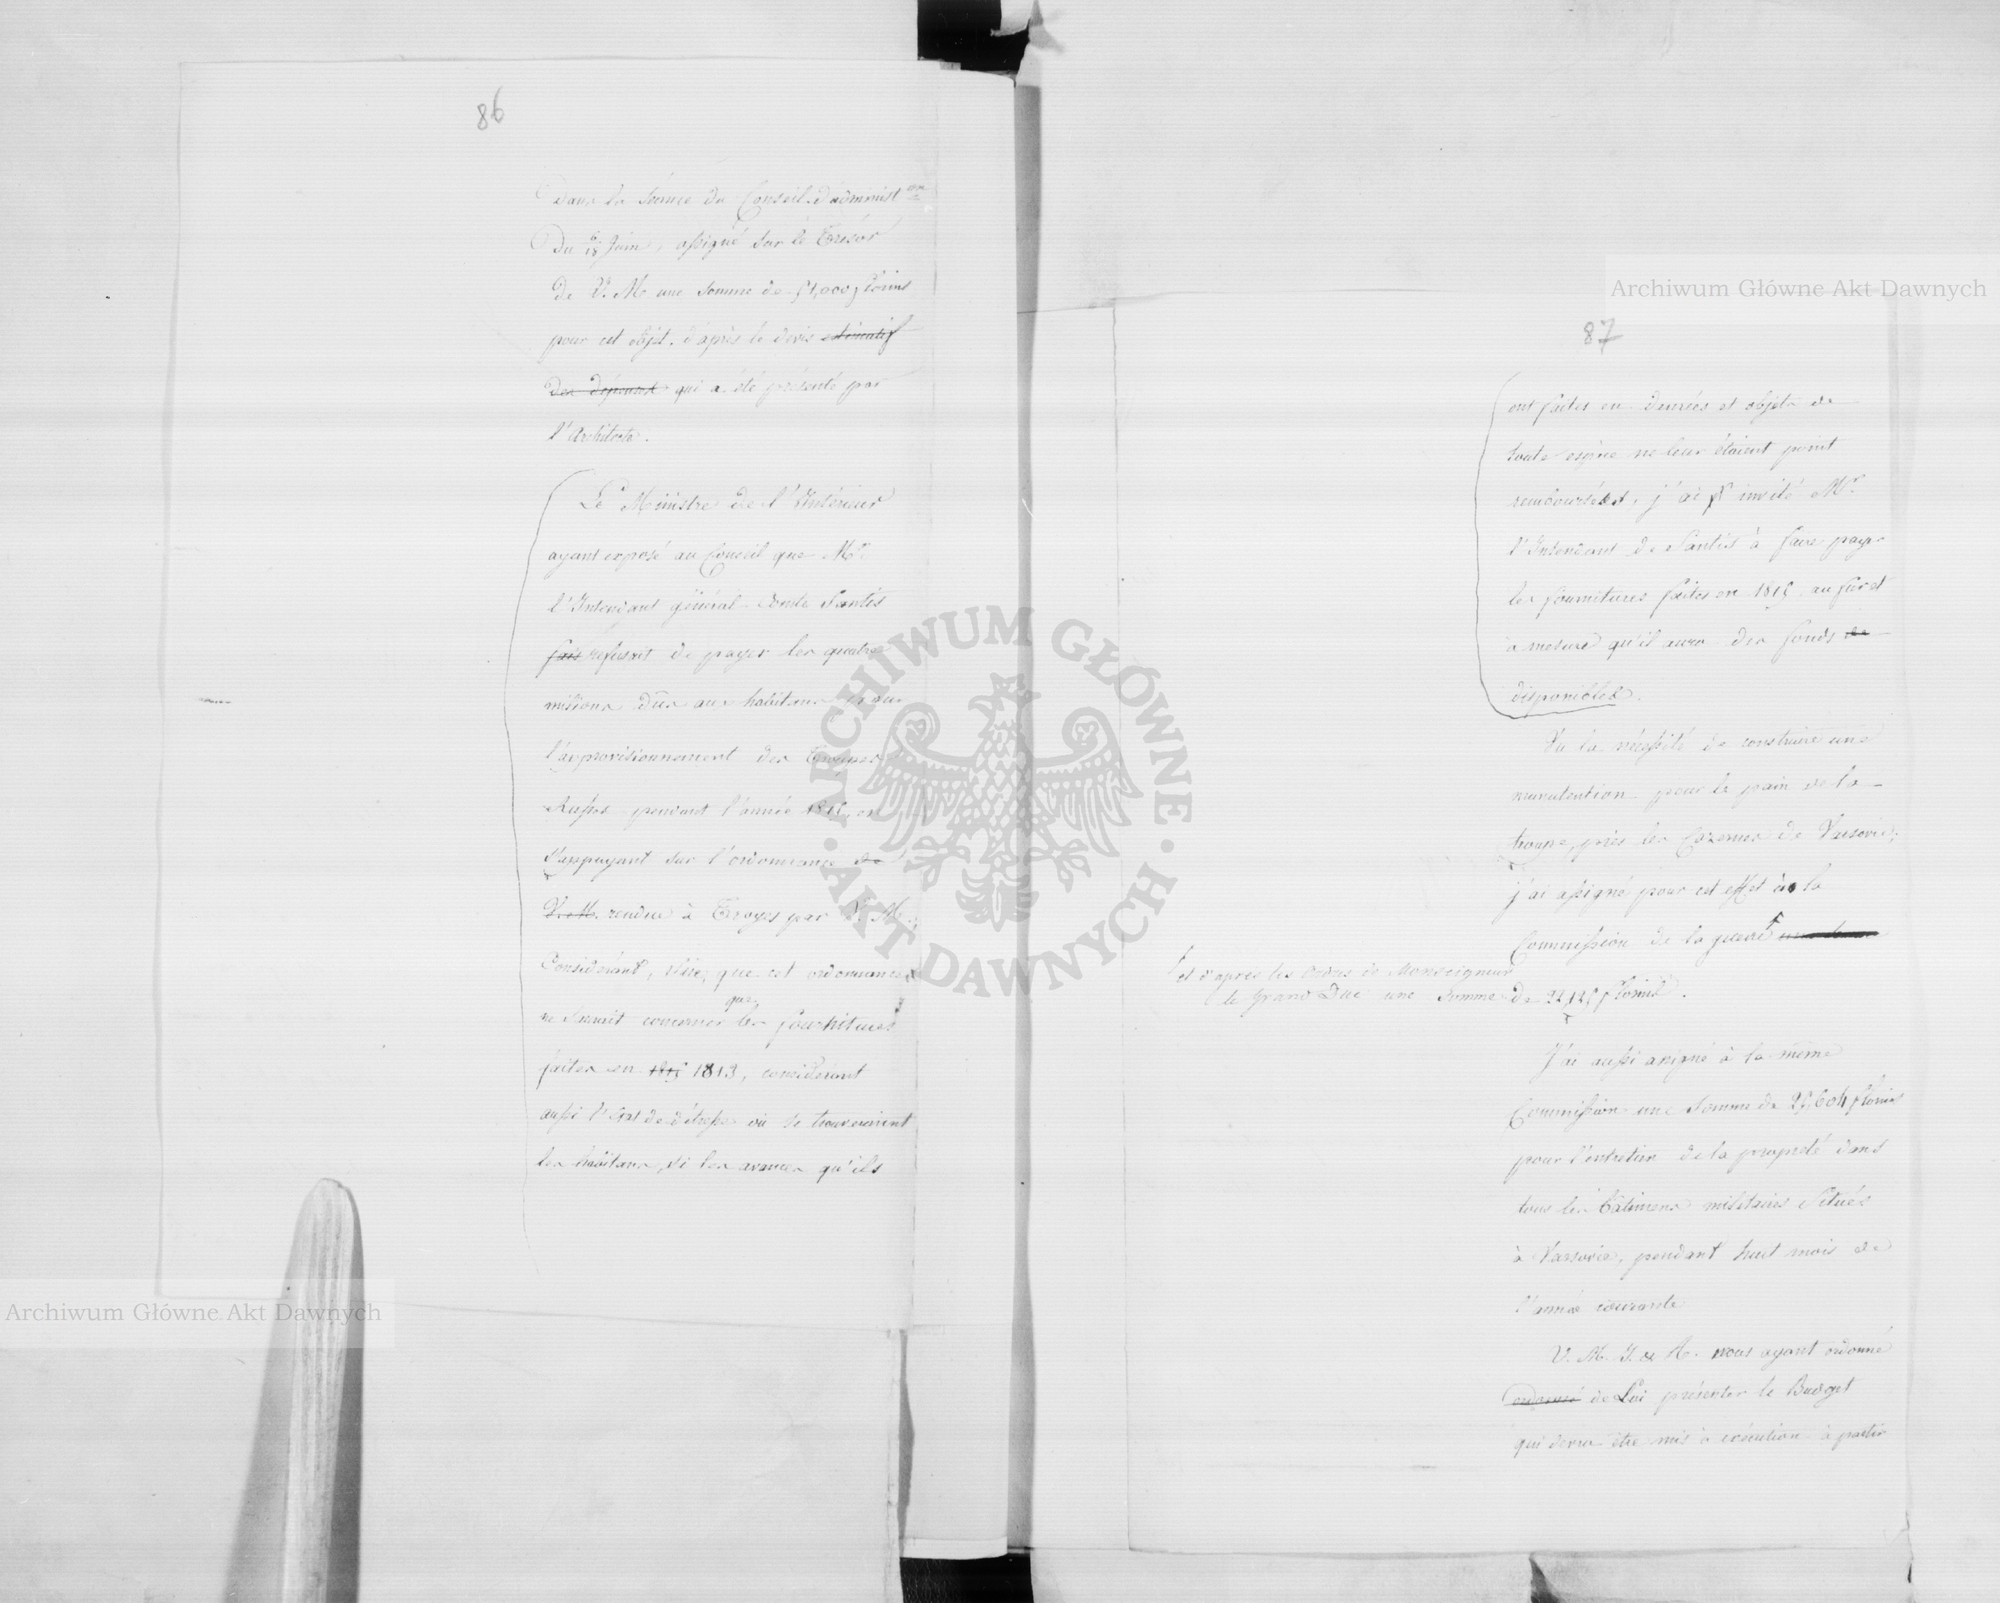 86
Dans la séance du Conseil d'administ^on
Du 6/18 Juin, assigné sur le Trésor
de V. M. une somme de 51,000 florins
pour cet objet, d'après le devis estimatif
des dépenses qui a été présenté par
l'Architecte.
Le Ministre de l'Intérieur
ayant exposé au Conseil que Mr.
l'Intendant général Comte Santis
fait refusait de payer les quatre
millions dûs aux habitans pour
l'approvisionnement des Troupes
Russes pendant l'année 1815, en
s'appuyant sur l'ordonnance de
V. M. rendue à Troyes par V. M.;
Considérant, que cet ordonnance
ne saurait concerner que les fournitures
faites en 1815 1813, considérant
aussi l'état de détresse où se trouveraient
les habitans, si les avances qu'ils
87
ont faites en denrées et objets de
toute espèce ne leur étaient point
remboursées, j'ai invité Mr.
l'Intendant de Santis à faire payer
les fournitures faites en 1815 au fur et
à mesure qu'il aura des fonds de
disponibles.
Vu la nécessité de construire une
manutention pour le pain de la
troupe, près les Cazernes de Varsovie;
j'ai assigné pour cet effet à la
Commission de la guerre une somme
et d'après les ordres de Monseigneur
le Grand Duc une somme de 22,125 florins.
J'ai aussi assigné à la même
Commission une somme de 25,604 florins
pour l'entretien de la propreté dans
tous les bâtimens militaires situés
à Varsovie, pendant huit mois de
l'année courante
V. M. I. & R. nous ayant ordonné
ordonné de Lui présenter le Budget
qui devra être mis à exécution à partir
Archiwum Główne Akt Dawnych
Archiwum Główne Akt Dawnych
ARCHIWUM GŁÓWNE · AKT DAWNYCH ·